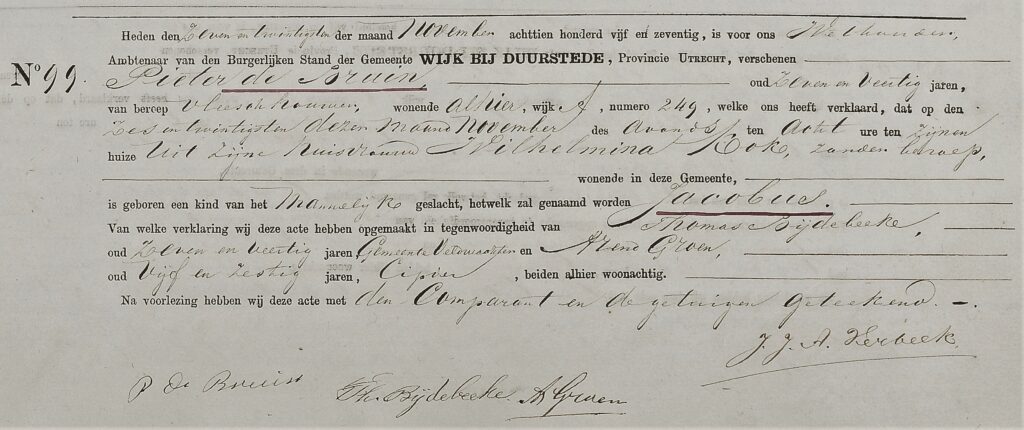 Heden den Zeven en twintigsten der maand November achttien honderd vijf en zeventig, is voor ons Wethouder,
Ambtenaar van den Burgerlijken Stand der Gemeente WIJK BIJ DUURSTEDE, Provincie UTRECHT, verschenen
No 99. Pieter de Bruin oud Zeven en Veertig jaren,
van beroep Vleeschhouwer, wonende alhier, wijk A, numero 249, welke ons heeft verklaard, dat op den
Zes en twintigsten dezer maand November des avonds ten Acht ure ten Zijnen
huize Uit Zijne huisvrouw Wilhelmina Kok, zonder beroep,
wonende in deze Gemeente,
is geboren een kind van het Mannelijke geslacht, hetwelk zal genaamd worden Jacobus.
Van welke verklaring wij deze acte hebben opgemaakt in tegenwoordigheid van Thomas Bijdebeeke,
oud Zeven en Veertig jaren, Gemeente en Arend Groen,
oud Vijf en Zestig jaren, Cipier, beiden alhier woonachtig.
Na voorlezing hebben wij deze acte met den Comparant en de getuigen geteekend. -.
J. J. A. Verbeek
P de Bruin Th. Bijdebeeke. A Groen